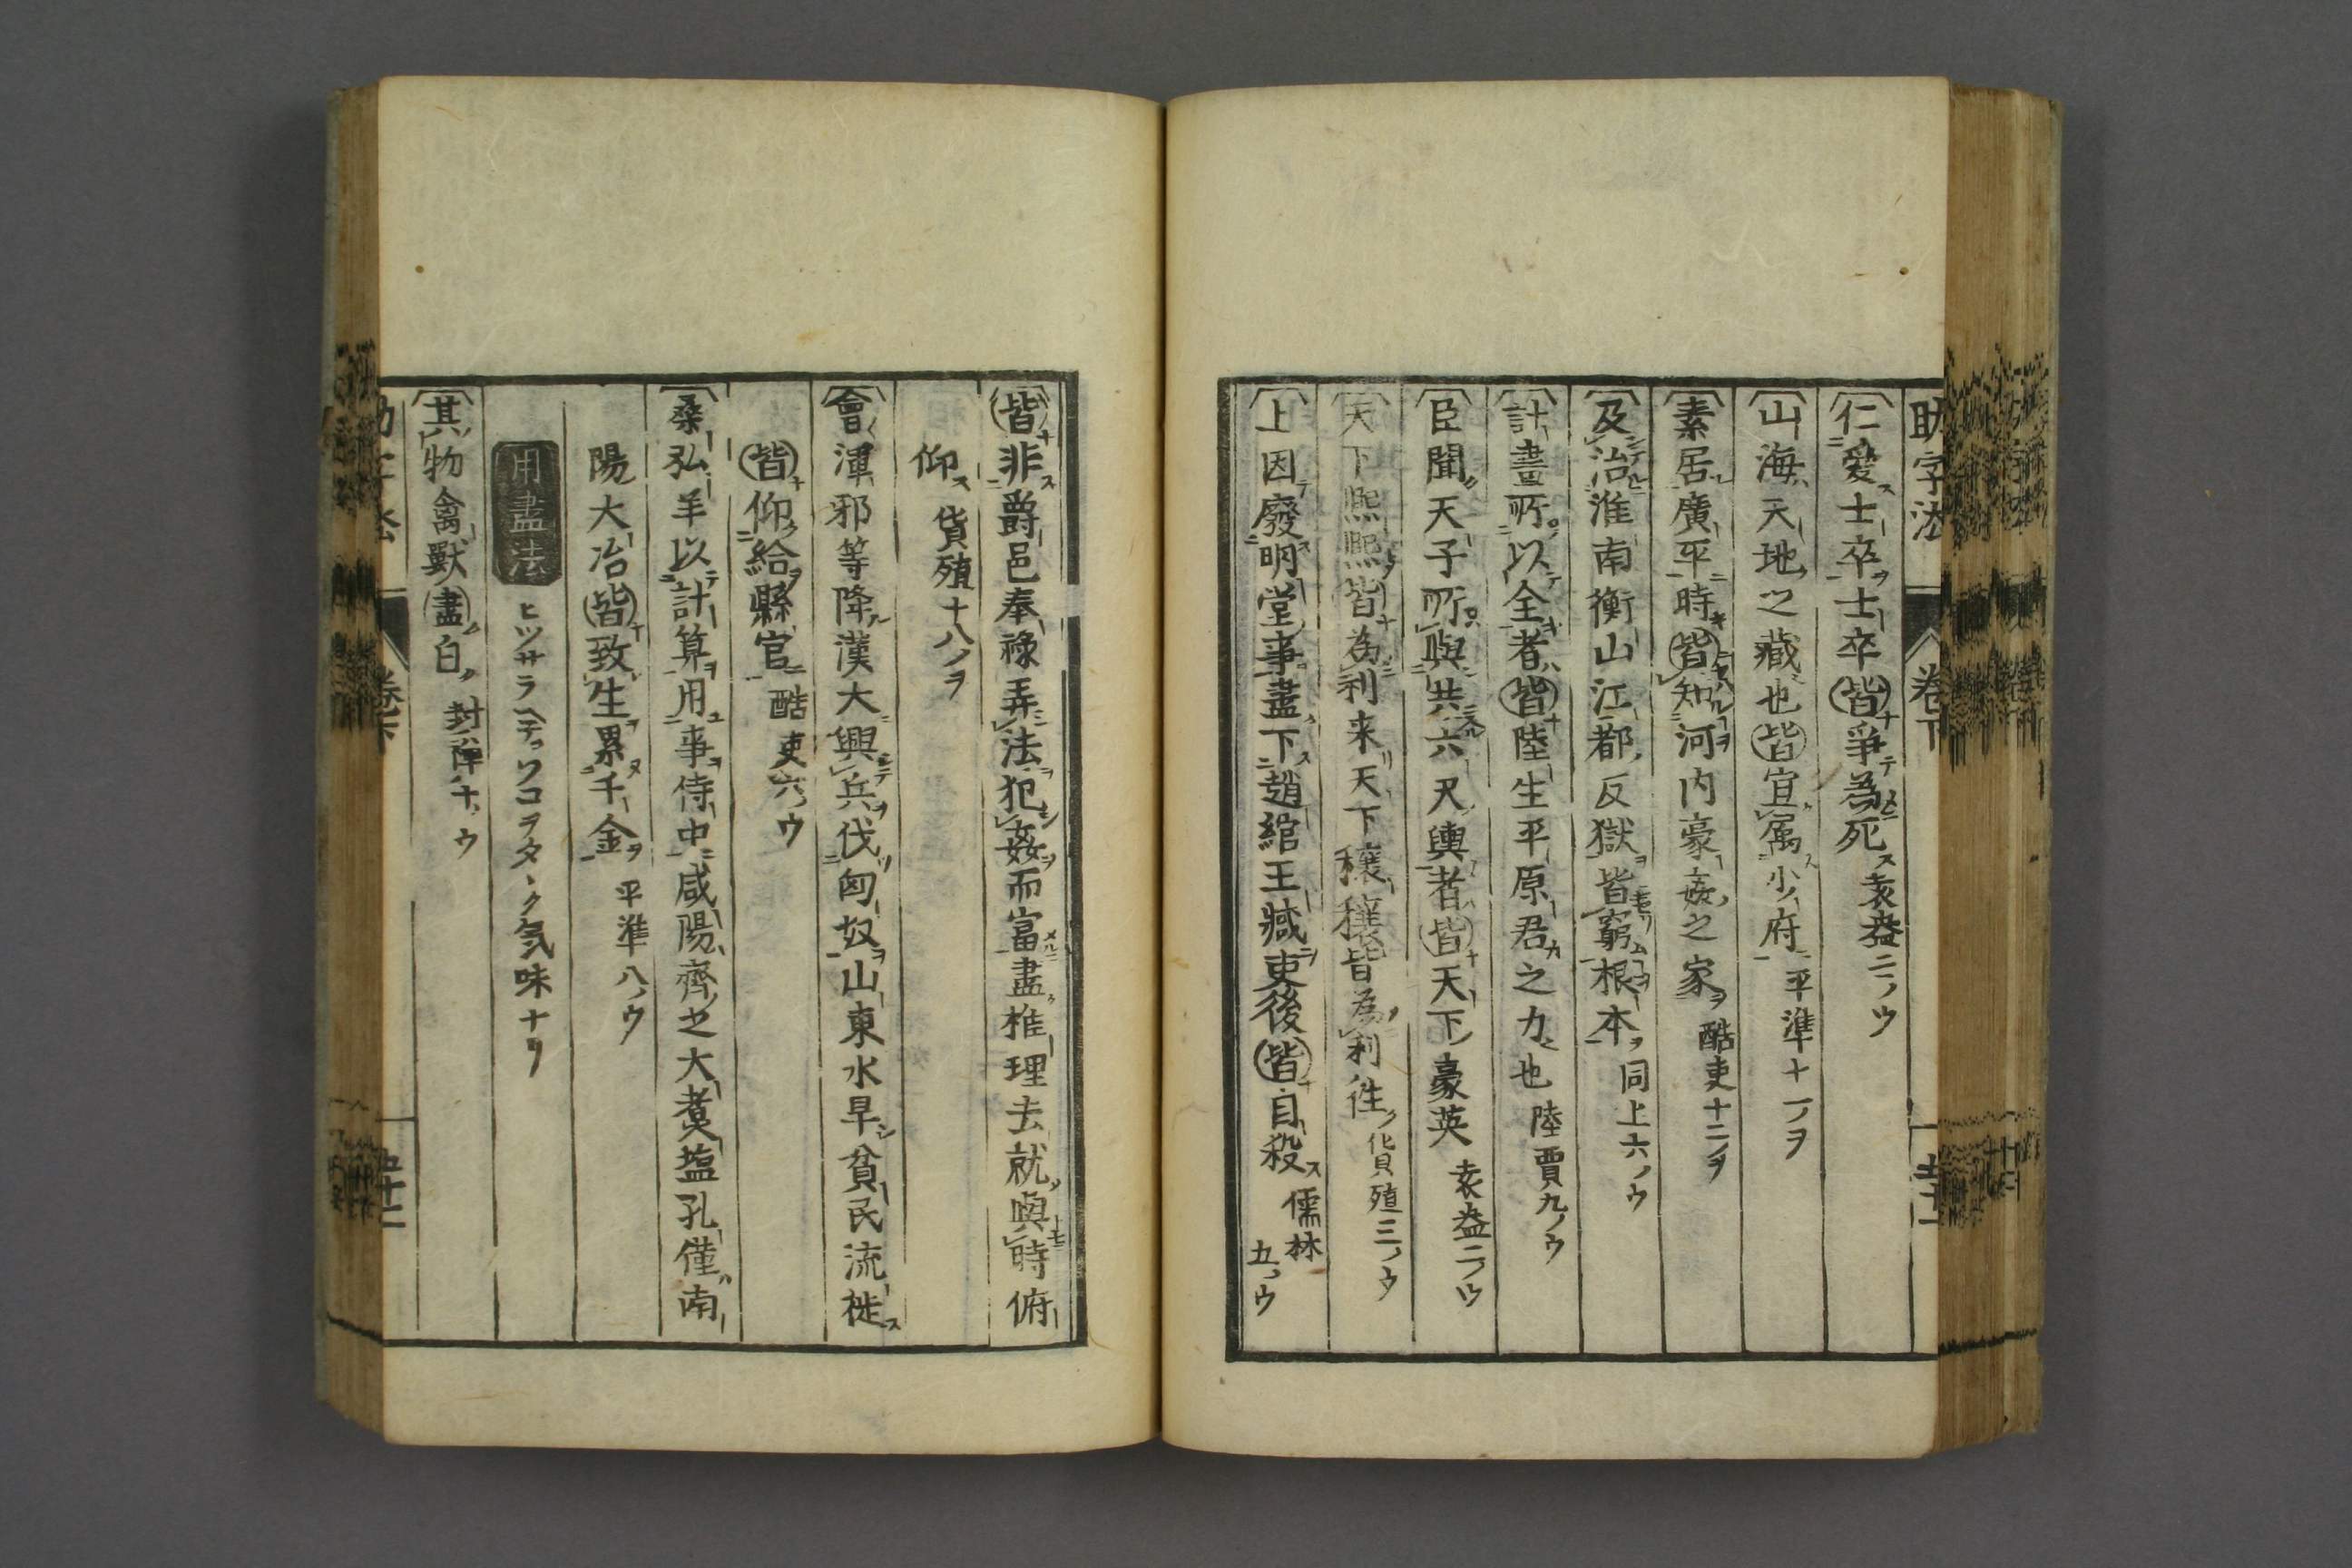 助字法 卷下
仁愛士卒士卒皆爭為死 袁盎二ノウ
山海天地之藏也皆宜属少府 平準十一ノヲ
素居廣平時皆知河内豪姦之家 酷吏十二ノヲ
及治淮南衡山江都反獄皆窮根本 同上六ノウ
計畫所以全者皆陸生平原君之力也 陸賈九ノウ
臣聞天子所與共六尺輿者皆天下豪英 袁盎二ノウ
天下熙熙皆為利来天下穰穰皆為利徃 貨殖三ノウ
上因廢明堂事盡下趙綰王臧吏後皆自殺 儒林五ノウ
皆非爵邑奉祿弄法犯姦而富盡椎理去就與時俯
仰 貨殖十八ノヲ
會渾邪等降漢大興兵伐匈奴山東水旱貧民流徙
皆仰給縣官 酷吏六ノウ
桑弘羊以計算用事侍中咸陽齊之大煑塩孔僅南
陽大冶皆致生累千金 平準八ノウ
用盡法 ヒツサラヘテワコラタヽク気味ナリ
其物禽獸盡白 封禪十ノウ
卷下